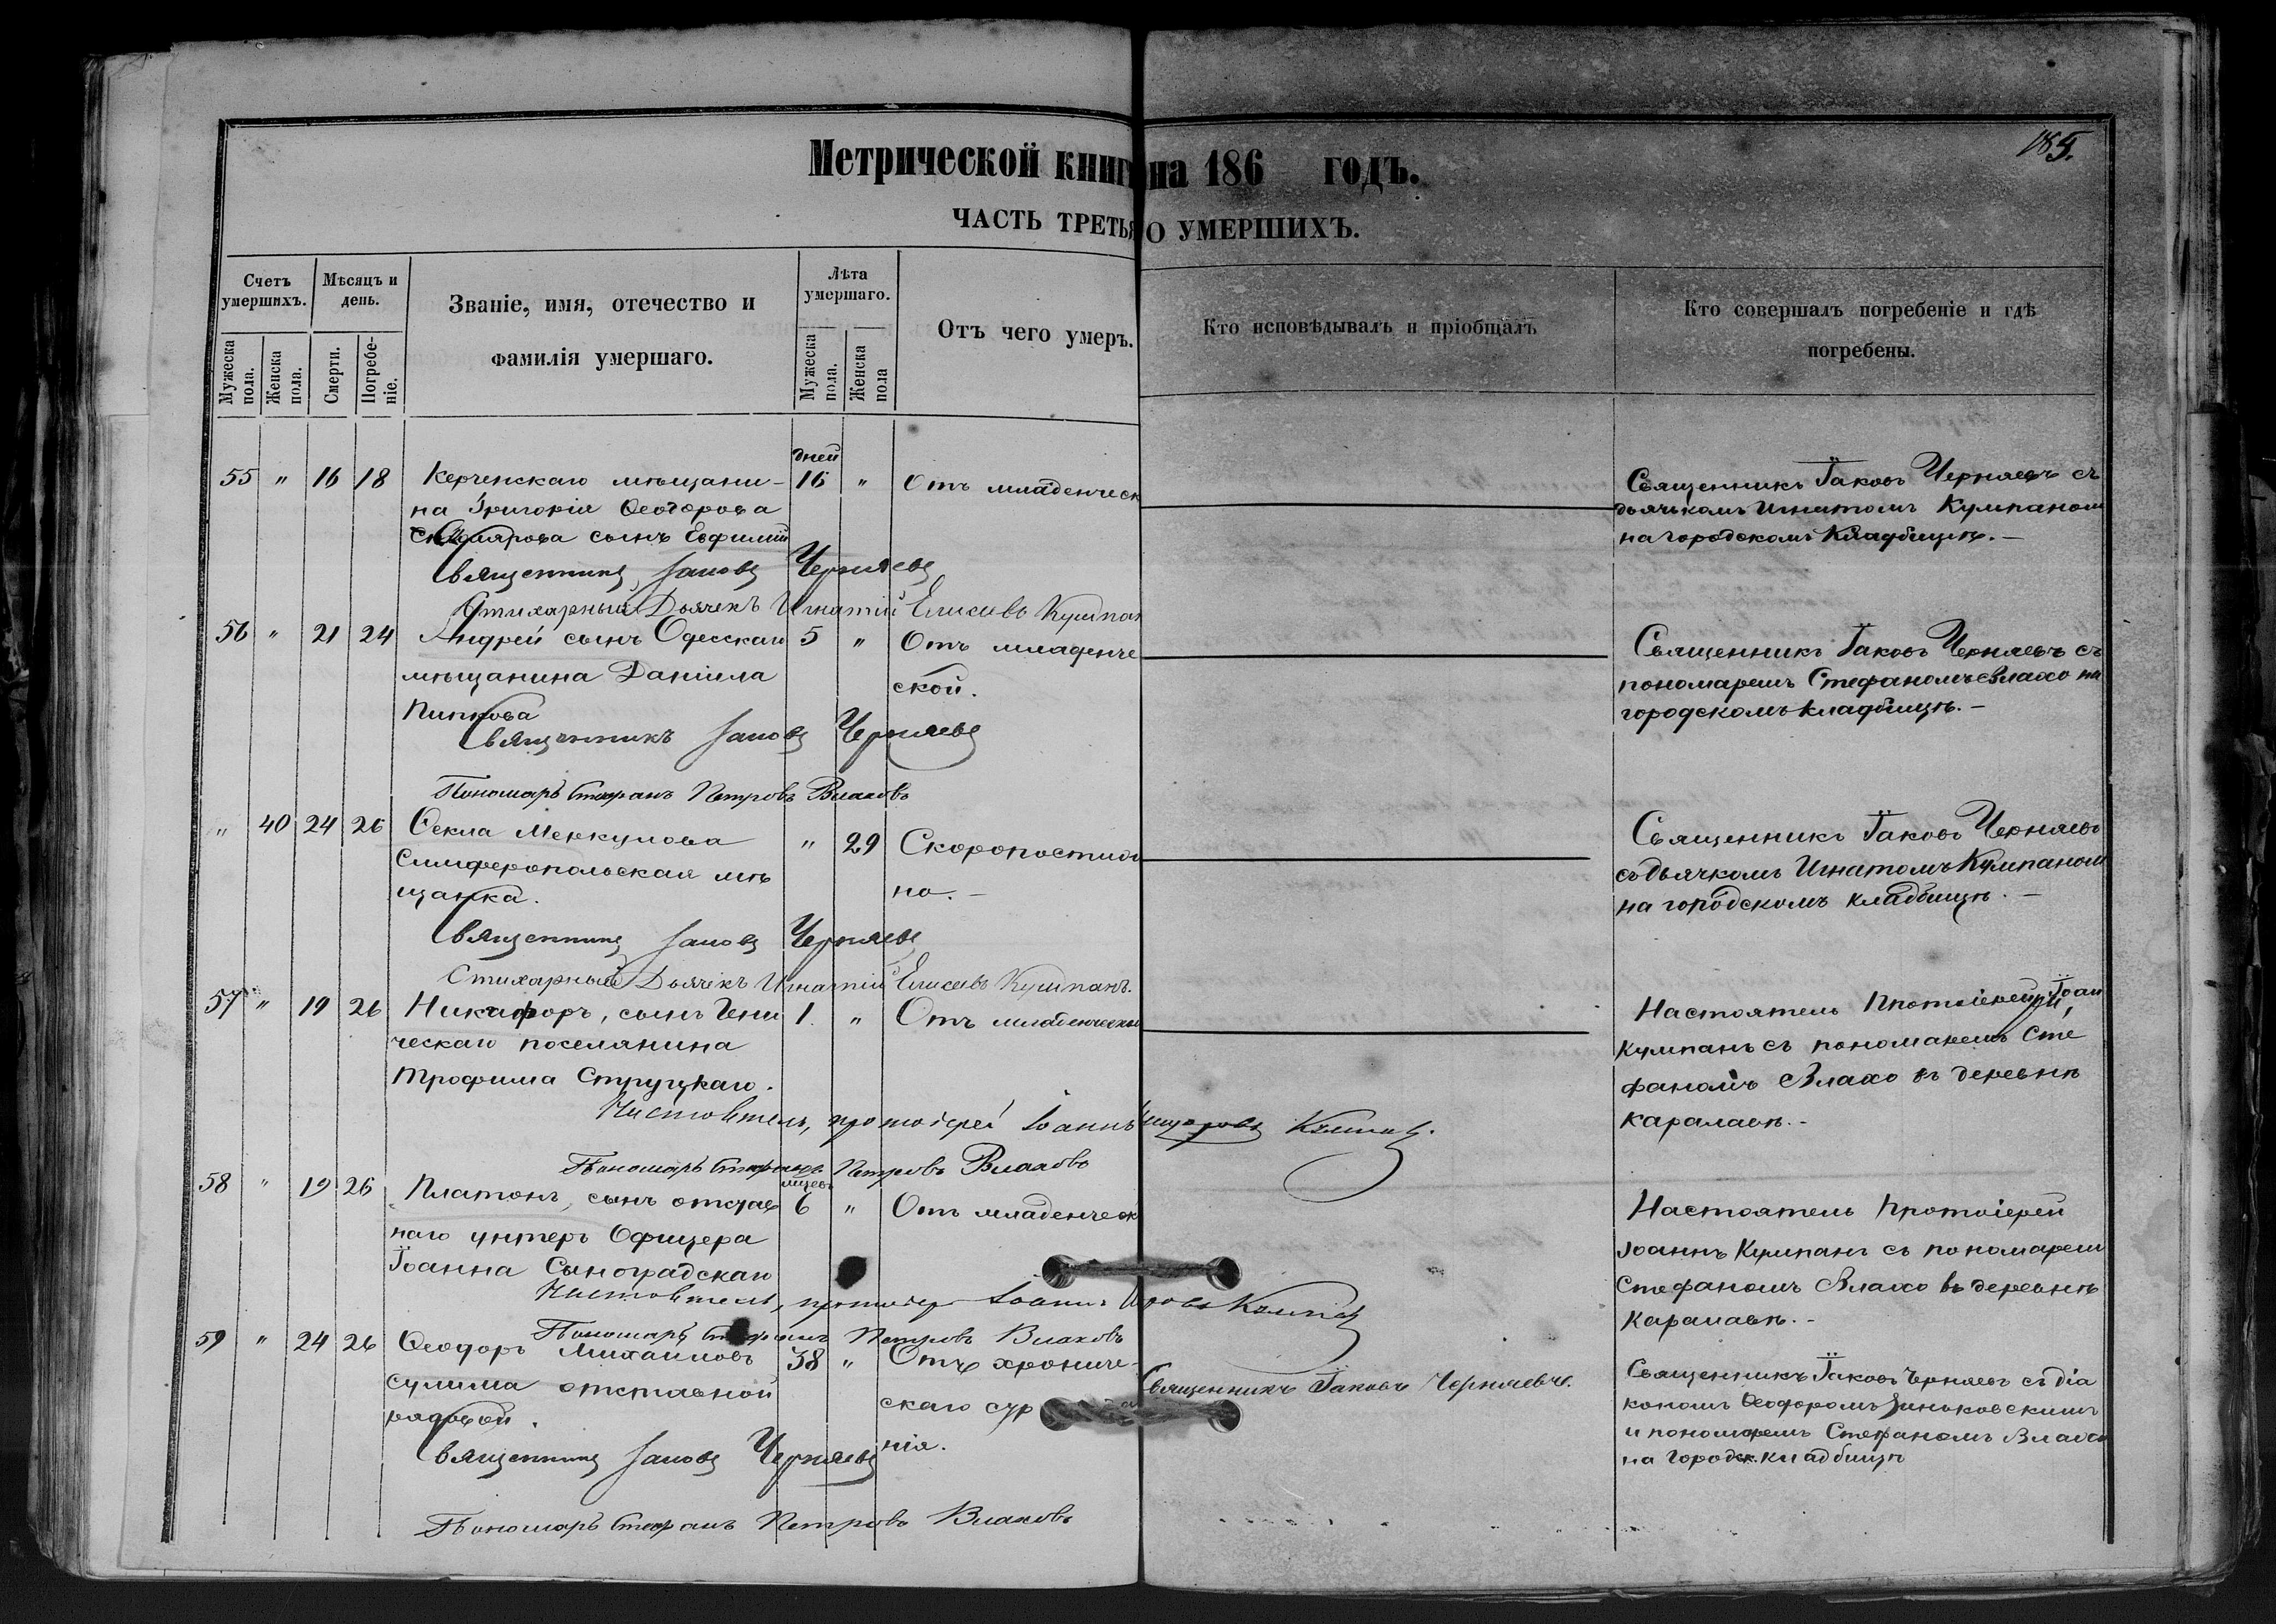 185.
Метрической книги на 186 годъ.
ЧАСТЬ ТРЕТЬЯ О УМЕРШИХЪ.
Счетъ умершихъ.
Мѣсяцъ и день.
Званіе, имя, отечество и фамилія умершаго.
Лѣта умершаго.
Отъ чего умеръ.
Кто исповѣдывалъ и пріобщалъ
Кто совершалъ погребеніе и гдѣ погребены.
Мужеска пола.
Женска пола.
Смерти.
Погребеніе.
Мужеска пола.
Женска пола
дней
55 " 16 18 Керченскаго мѣщани- 16 " Отъ младенческ
на Григорія Ѳеодорова
сынъ Евфимій
Священникъ Іаковъ Черняевъ
Стихарный Дьячекъ Игнатій Елисеевъ Кумпан
Священникъ Іаковъ Черняевъ съ
дьячькомъ Игнатомъ Кумпаном
на городскомъ Кладбищѣ.—
56 " 21 24 Андрей сынъ Одесскаго 5 " Отъ младенче
мѣщанина Даніила ской.
Пипкова
Священникъ Іаковъ Черняевъ
Пономарь Стефанъ Петровъ Влаховъ
Священникъ Іаковъ Черняевъ съ
пономаремъ Стефаномъ Влахо на
городскомъ кладбищѣ.—
" 40 24 26 Ѳекла Меркулова " 29 Скоропостиж
Симферопольская мѣ но.—
щанка.
Священникъ Іаковъ Черняевъ
Стихарный Дьячекъ Игнатій Елисеевъ Кумпанъ.
Священникъ Іаковъ Черняевъ
съ дьячкомъ Игнатомъ Кумпаном
на городскомъ кладбищѣ.—
57 " 19 26 Никифоръ, сынъ Гени 1. " Отъ младенческ
ческаго поселянина
Трофима Струцкаго.
Настоятель, протоіерей Іоаннъ Кумпанъ.
Пономарь Стефанъ Петровъ Влаховъ
Настоятель Протоіерей Іоан
Кумпанъ съ пономаремъ Сте
фаномъ Влахо въ деревнѣ
Каралаевѣ.-
мѣсец
58 " 19 26 Платонъ, сынъ отстав 6 " Отъ младенческ
наго унтеръ Офицера
Іоанна Сыноградскаго
Настоятель, протоіер Іоаннъ Кумпанъ
Пономарь Стефанъ Петровъ Влаховъ
Настоятель Протоіерей
Іоаннъ Кумпанъ съ пономарем
Стефаномъ Влахо въ деревнѣ
Каралаевѣ.-
59 " 24 26 Ѳеодоръ Михаиловъ 38 " Отъ хрониче-
Сулима отставной скаго
рядовой. нія.
Священникъ Іаковъ Черняевъ
Пономарь Стефанъ Петровъ Влаховъ
Священникъ Іаковъ Черняевъ.
Священникъ Іаковъ Черняевъ съ діа
кономъ Ѳеодоромъ Зиньковскимъ
и пономаремъ Стефаномъ Влахо
на Городск. кладбищѣ